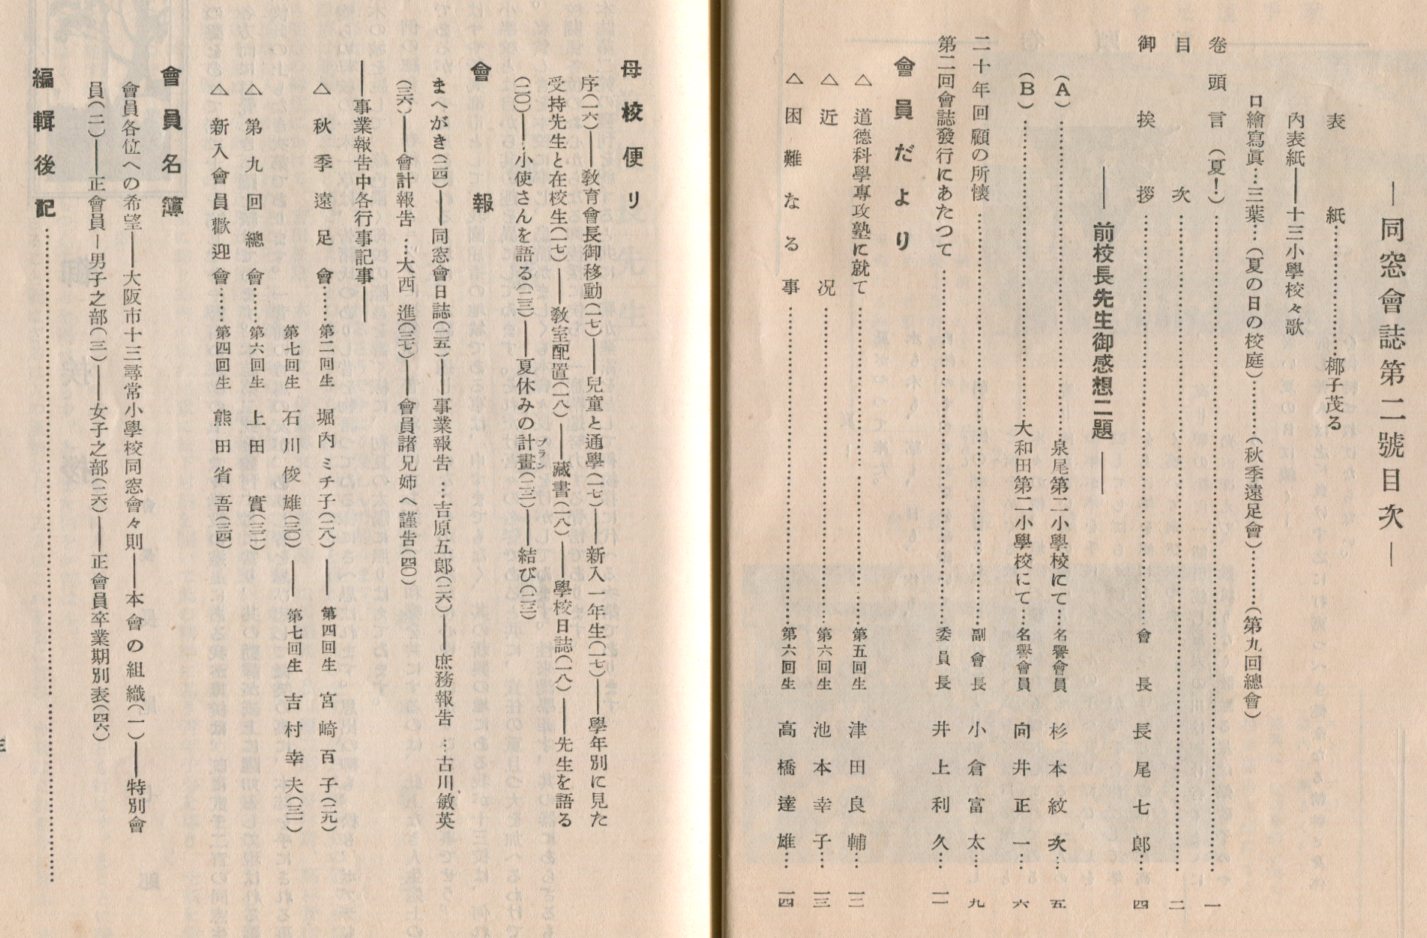 ―同窓會誌第二號目次―
表紙………椰子茂る
內表紙――十三小學校々歌
口繪寫眞…三葉…(夏の日の校庭)………(秋季遠足會)………(第九回總會)
卷頭言(夏!)………一
目次………二
御挨拶………會長 長尾七郎…四
――前校長先生御感想二題――
(A)………泉尾第二小學校にて…名譽會員 杉本紋次…五
(B)………大和田第二小學校にて…名譽會員 向井正一…六
二十年回顧の所懷………副會長 小倉富太…九
第二回會誌發行にあたつて………委員長 井上利久…一一
會員だより
△道德科學專攻塾に就て………第五回生 津田良輔…一二
△近況………第六回生 池本幸子…一三
△困難なる事………第六回生 高橋達雄…一四
母校便り
序(一六)――敎育會長御移動(一七)――兒童と通學(一七)――新入一年生(一七)――學年別に見た
受持先生と在校生(一七)――敎室配置(一八)――藏書(一八)――學校日誌(一八)――先生を語る
(二〇)――小使さんを語る(二三)――夏休みの計畫プラン(二三)――結び(二三)
會報
まへがき(二四)――同窓會日誌(二五)――事業報告…吉原五郎(二六)――庶務報告…古川敏英
(三六)――會計報告…大西進(三七)――會員諸兄姉へ謹告(四〇)
――事業報告中各行事記事――
△秋季遠足會…第二回生 堀內ミチ子(二八)――第四回生 宮崎百子(二九)
第七回生 石川俊雄(三〇)――第七回生 吉村幸夫(三一)
△第九回總會…第六回生 上田實(三二)
△新入會員歡迎會…第四回生 熊田省吾(三四)
會員名簿
會員各位への希望――大阪市十三尋常小學校同窓會々則――本會の組織(一)――特別會
員(二)――正會員―男子之部(三)――女子之部(二六)――正會員卒業期別表(四六)
編輯後記………